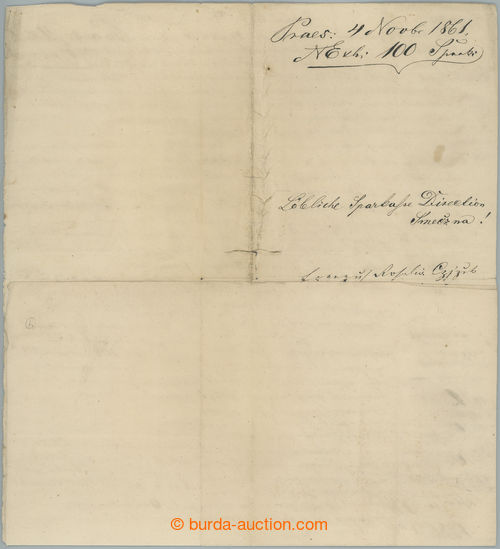 Praes: 4 Novbr 1861.
NExh: 100
Löbliche Sparkasse Direction
Smečzna!
Rosalia
© burda-auction.com